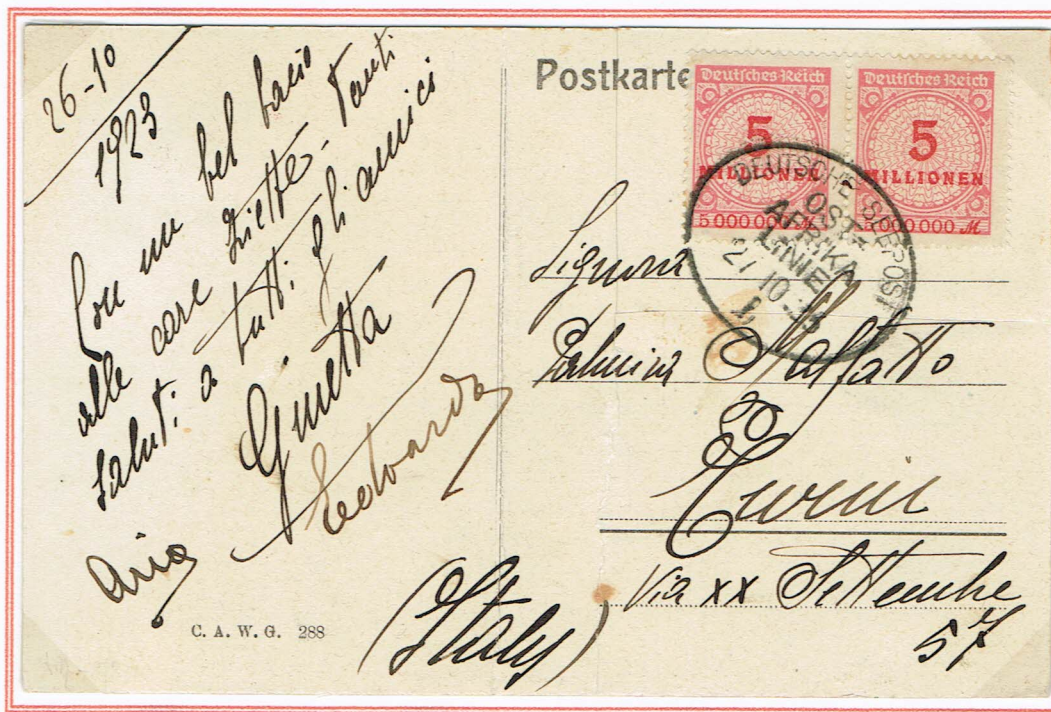 26-10
1923
Con un bel bacio
alle care Ziette. Tanti
saluti a tutti gli amici
Ginetta
Edoarda
C. A. W. G. 288
Postkarte
Deutsches Reich
5
MILLIONEN
5 000 000 M
Deutsches Reich
5
MILLIONEN
5 000 000 M
DEUTSCHE SEEPOST
OST-
AFRIKA
LINIE
27 10 23
Signora
Palmira Malfatto
Turin
Via XX Settembre
57
(Italy)